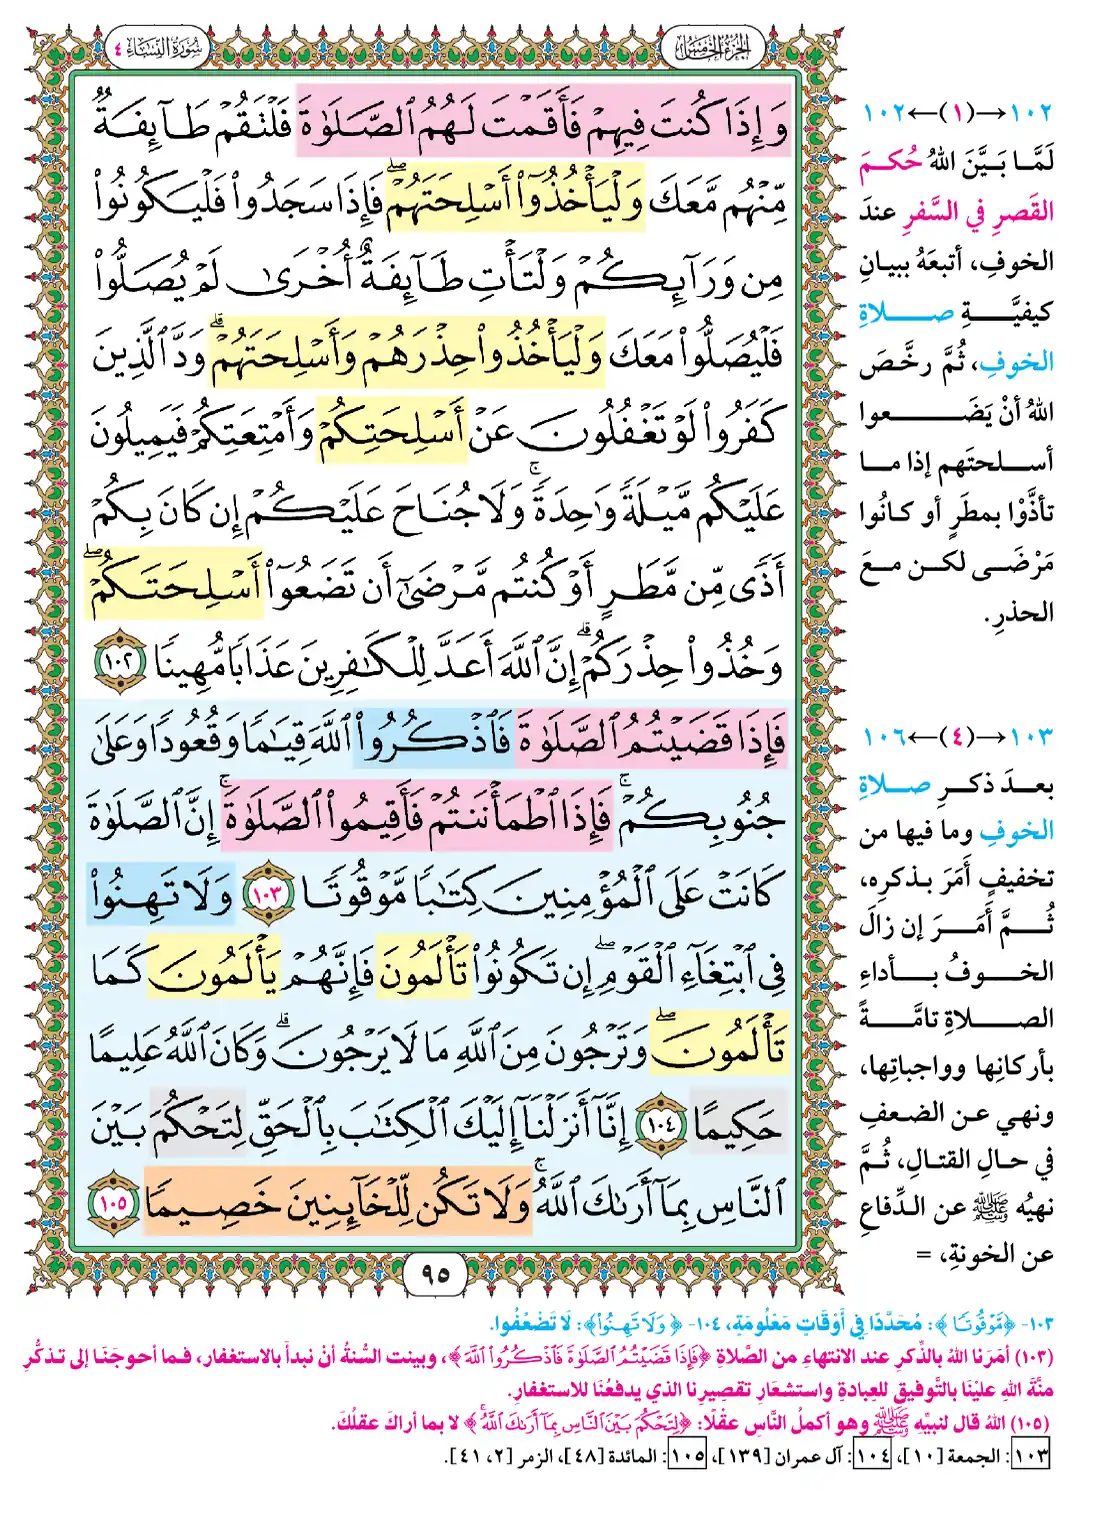 الجزء الخامس
سورة النساء ٤
وَإِذَا كُنتَ فِيهِمْ فَأَقَمْتَ لَهُمُ ٱلصَّلَوٰةَ فَلْتَقُمْ طَآئِفَةٌ
مِّنْهُم مَّعَكَ وَلْيَأْخُذُوٓا۟ أَسْلِحَتَهُمْ ۖ فَإِذَا سَجَدُوا۟ فَلْيَكُونُوا۟
مِن وَرَآئِكُمْ وَلْتَأْتِ طَآئِفَةٌ أُخْرَىٰ لَمْ يُصَلُّوا۟
فَلْيُصَلُّوا۟ مَعَكَ وَلْيَأْخُذُوا۟ حِذْرَهُمْ وَأَسْلِحَتَهُمْ ۗ وَدَّ ٱلَّذِينَ
كَفَرُوا۟ لَوْ تَغْفُلُونَ عَنْ أَسْلِحَتِكُمْ وَأَمْتِعَتِكُمْ فَيَمِيلُونَ
عَلَيْكُم مَّيْلَةً وَٰحِدَةً ۚ وَلَا جُنَاحَ عَلَيْكُمْ إِن كَانَ بِكُمْ
أَذًى مِّن مَّطَرٍ أَوْ كُنتُم مَّرْضَىٰٓ أَن تَضَعُوٓا۟ أَسْلِحَتَكُمْ ۖ
وَخُذُوا۟ حِذْرَكُمْ ۗ إِنَّ ٱللَّهَ أَعَدَّ لِلْكَٰفِرِينَ عَذَابًا مُّهِينًا ١٠٢
فَإِذَا قَضَيْتُمُ ٱلصَّلَوٰةَ فَٱذْكُرُوا۟ ٱللَّهَ قِيَٰمًا وَقُعُودًا وَعَلَىٰ
جُنُوبِكُمْ ۚ فَإِذَا ٱطْمَأْنَنتُمْ فَأَقِيمُوا۟ ٱلصَّلَوٰةَ ۚ إِنَّ ٱلصَّلَوٰةَ
كَانَتْ عَلَى ٱلْمُؤْمِنِينَ كِتَٰبًا مَّوْقُوتًا ١٠٣ وَلَا تَهِنُوا۟
فِى ٱبْتِغَآءِ ٱلْقَوْمِ ۖ إِن تَكُونُوا۟ تَأْلَمُونَ فَإِنَّهُمْ يَأْلَمُونَ كَمَا
تَأْلَمُونَ ۖ وَتَرْجُونَ مِنَ ٱللَّهِ مَا لَا يَرْجُونَ ۗ وَكَانَ ٱللَّهُ عَلِيمًا
حَكِيمًا ١٠٤ إِنَّآ أَنزَلْنَآ إِلَيْكَ ٱلْكِتَٰبَ بِٱلْحَقِّ لِتَحْكُمَ بَيْنَ
ٱلنَّاسِ بِمَآ أَرَىٰكَ ٱللَّهُ ۚ وَلَا تَكُن لِّلْخَآئِنِينَ خَصِيمًا ١٠٥
٩٥
١٠٢→(١)←١٠٢
لَمَّا بَيَّنَ اللهُ حُكمَ
القَصرِ في السَّفرِ عندَ
الخوفِ، أتبعَهُ ببيانِ
كيفيَّةِ صلاةِ
الخوفِ، ثُمَّ رخَّصَ
اللهُ أنْ يَضَعوا
أسلحتَهم إذا ما
تأذَّوْا بمطرٍ أو كانُوا
مَرْضَى لكن معَ
الحذرِ.
١٠٣→(٤)←١٠٦
بعدَ ذكرِ صلاةِ
الخوفِ وما فيها من
تخفيفٍ أَمَرَ بذكرِه،
ثُمَّ أَمَرَ إن زالَ
الخوفُ بأداءِ
الصلاةِ تامَّةً
بأركانِها وواجباتِها،
ونهي عن الضعفِ
في حالِ القتالِ، ثُمَّ
نهيُه ﷺ عن الدِّفاعِ
عن الخونةِ، =
١٠٣- ﴿مَّوْقُوتًا﴾: مُحَدَّدًا فِي أَوْقَاتٍ مَعْلُومَةٍ، ١٠٤- ﴿وَلَا تَهِنُوا۟﴾: لَا تَضْعُفُوا.
(١٠٣) أمَرَنا اللهُ بالذِّكرِ عند الانتهاءِ من الصَّلاةِ ﴿فَإِذَا قَضَيْتُمُ ٱلصَّلَوٰةَ فَٱذْكُرُوا۟ ٱللَّهَ﴾، وبينت السُّنةُ أنْ نبدأ بالاستغفار، فما أحوجَنَا إلى تذكُّرِ
منَّةَ اللهِ علينَا بالتَّوفيقِ للعبادةِ واستشعَارِ تقصيرِنا الذي يدفعُنَا للاستغفارِ.
(١٠٥) اللهُ قال لنبيِّه ﷺ وهو أكملُ النَّاسِ عقْلًا: ﴿لِتَحْكُمَ بَيْنَ ٱلنَّاسِ بِمَآ أَرَىٰكَ ٱللَّهُ ۚ﴾ لا بما أراكَ عقلُكَ.
١٠٣: الجمعة [١٠]، ١٠٤: آل عمران [١٣٩]، ١٠٥: المائدة [٤٨]، الزمر [٢، ٤١].